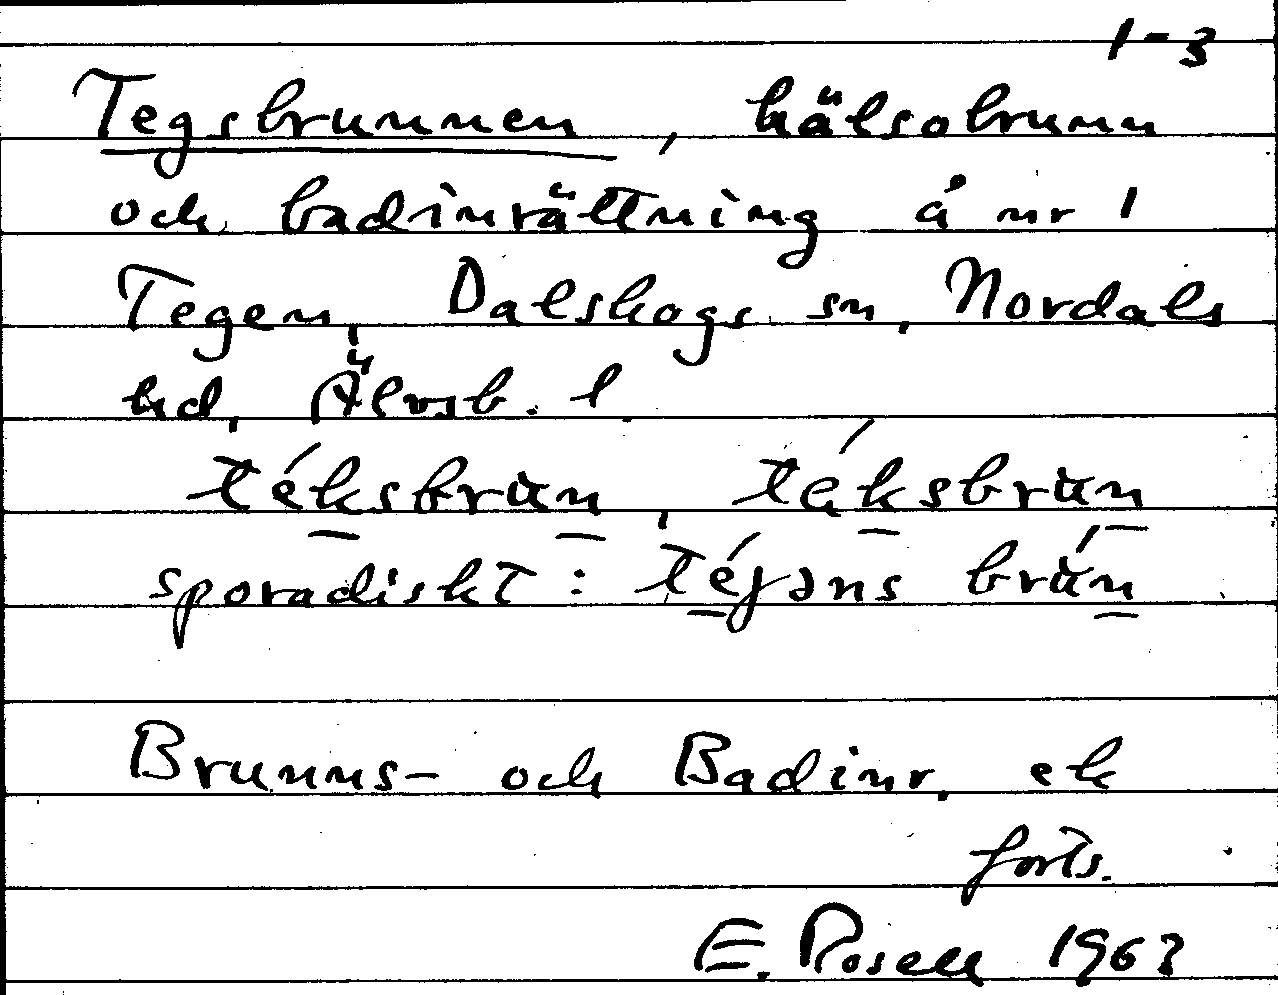 1-3
Tegsbrunnen, hälsobrunn
och badinrättning å nr 1
Tegen, Dalskogs sn, Nordals
hd, Älvsb. l.
téksbrùn, táksbrùn
sporadiskt: téjəns brùn
Brunns- och Badinr. ek
forts.
E. Rosell 1963